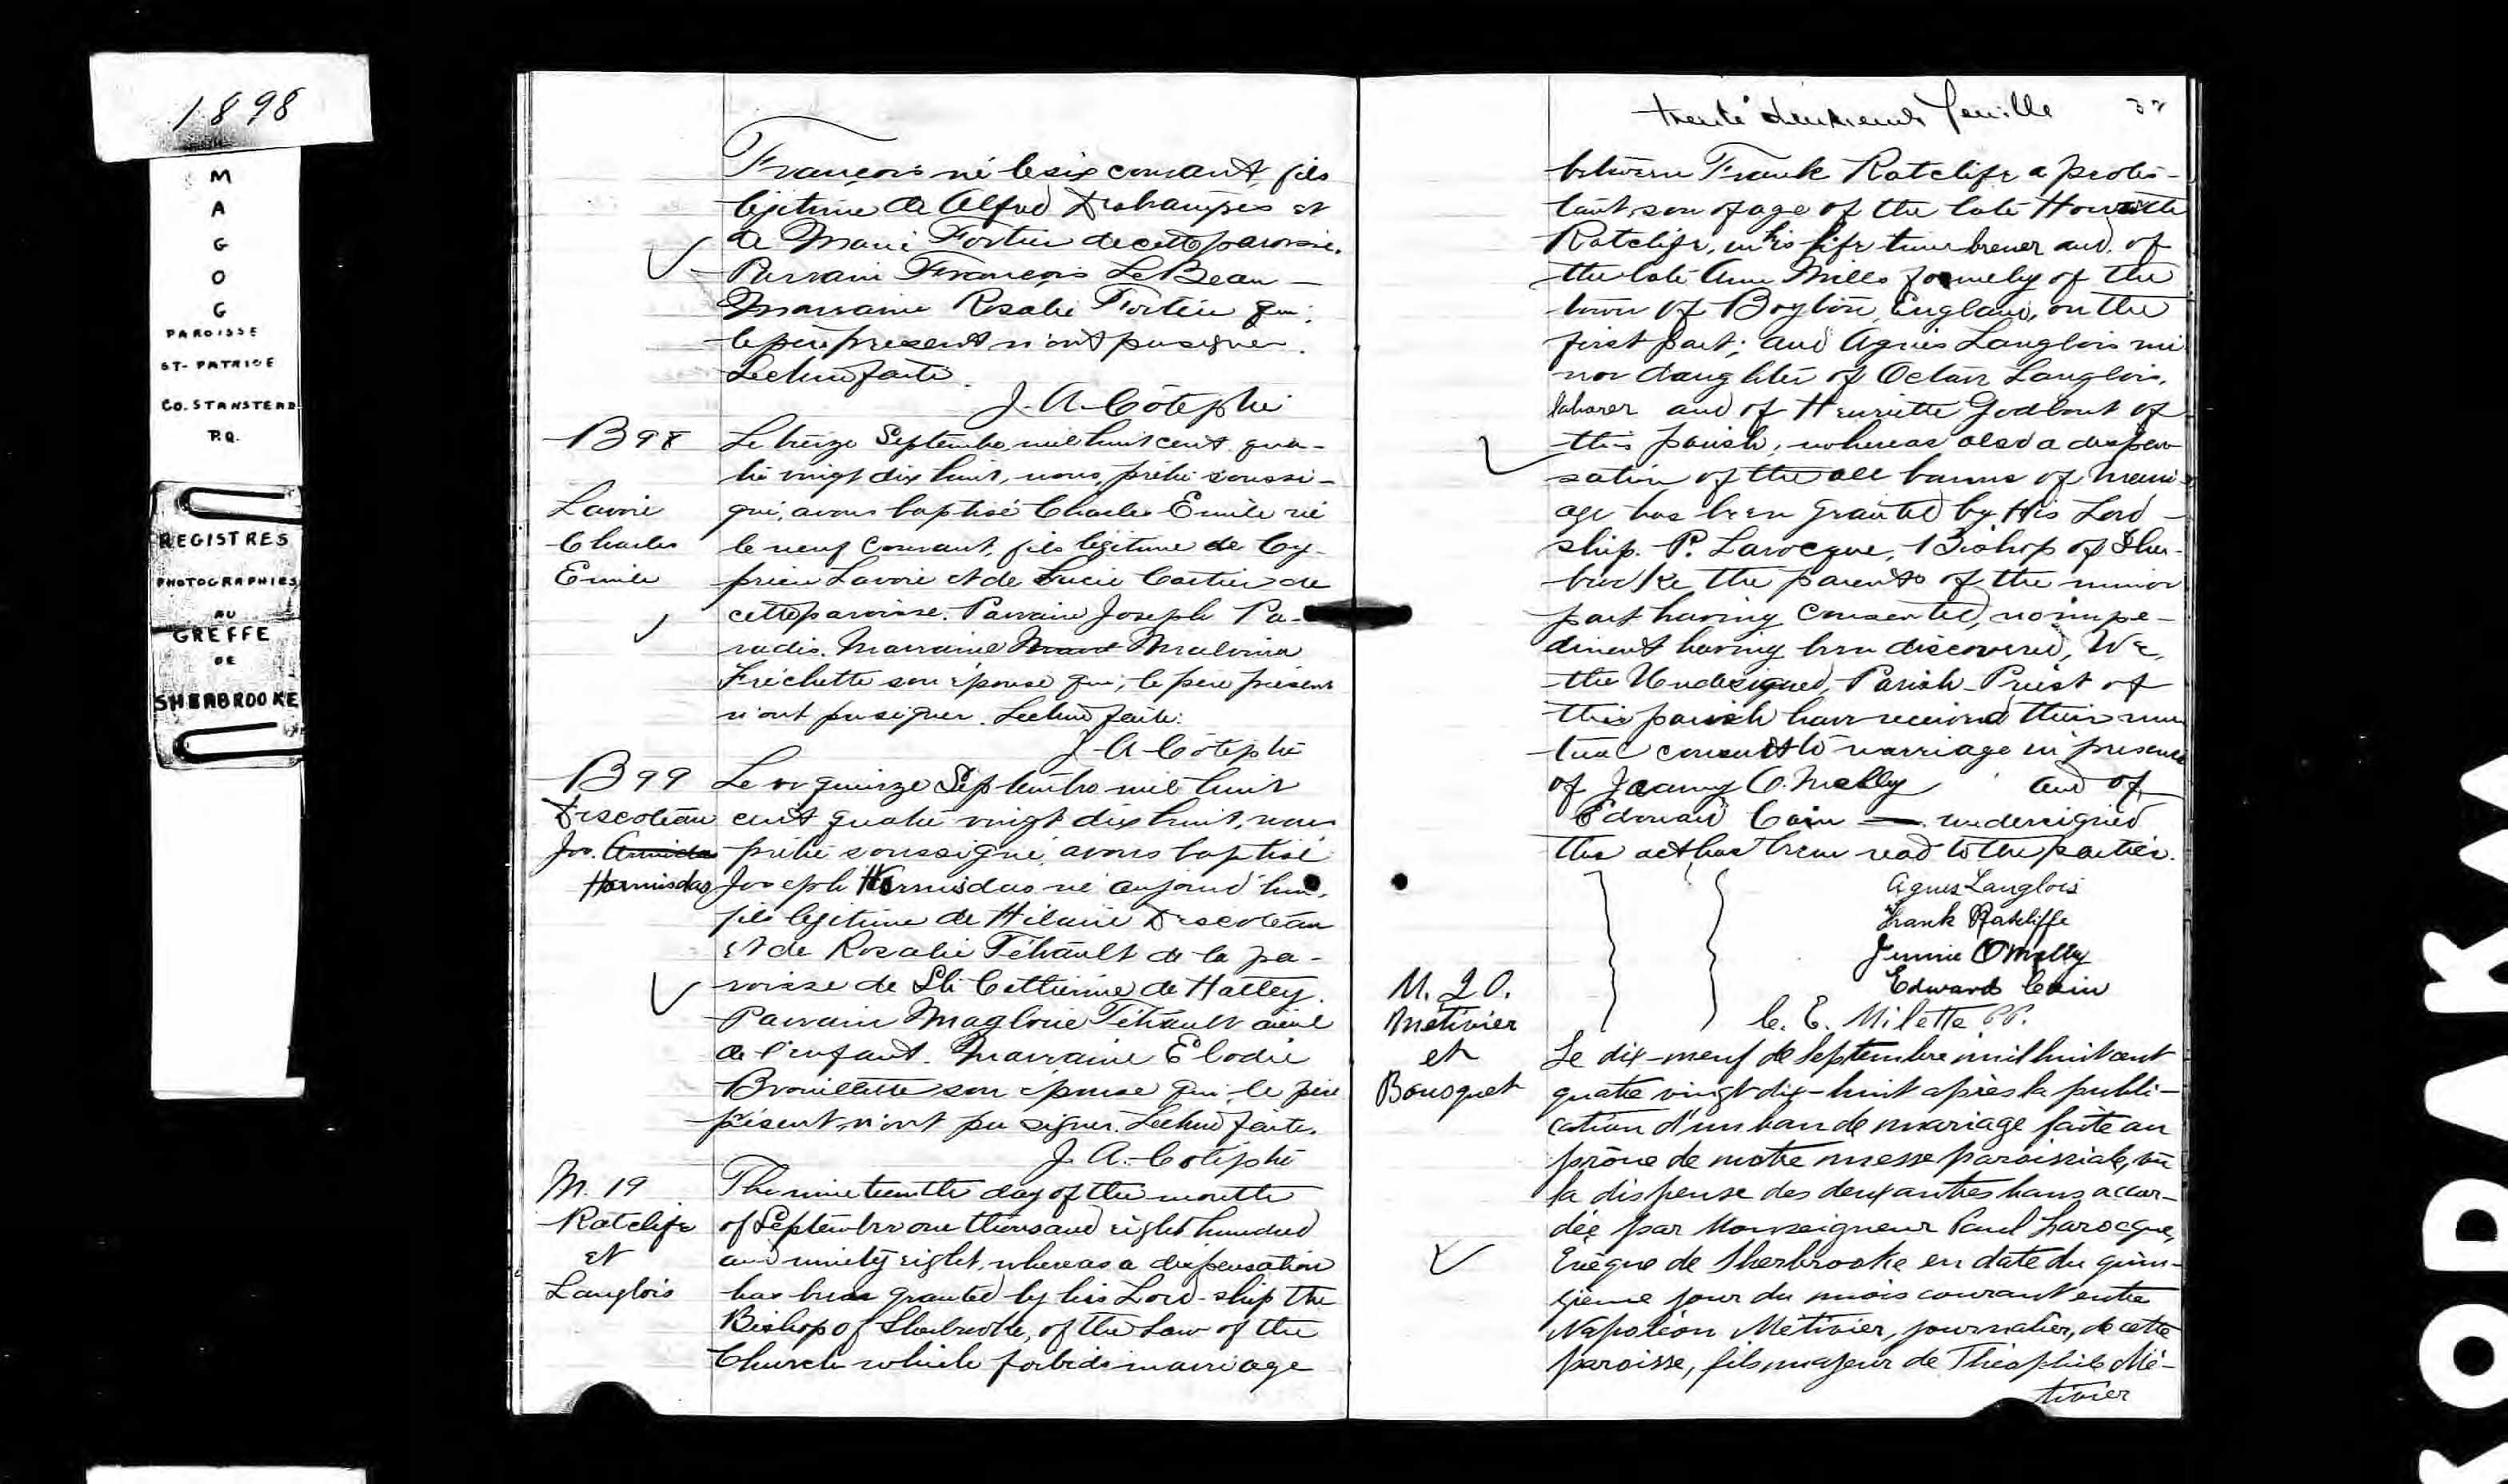 1898
M
A
G
O
G
PAROISSE
ST-PATRICE
CO. STANSTEAD
P.Q.
REGISTRES
PHOTOGRAPHIES
AU
GREFFE
DE
SHERBROOKE
François né le six courant, fils
légitime de Alfred Deschamps et
de Marie Fortier de cette paroisse.
Parrain François LeBeau —
Marraine Rosalie Fortier qui,
le père présent n'ont pu signer.
Lecture faite.
J. A. Côté ptre
B 98
Lavoie
Charles
Emile
Le treize Septembre mil huit cent qua-
tre vingt dix huit, nous, prêtre soussi-
gné, avons baptisé Charles Emile né
le neuf courant, fils légitime de Cy-
prien Lavoie et de Lucie Cartier de
cette paroisse. Parrain Joseph Pa-
radis. Marraine Malvina
Fréchette son épouse qui, le père présent
n'ont pu signer. Lecture faite.
J. A. Côté ptre
B 99
Descoteau
Jos. Armida
Hormisdas
Le quinze Septembre mil huit
cent quatre vingt dix huit, nous
prêtre soussigné avons baptisé
Joseph Hormisdas né aujourd'hui,
fils légitime de Hilaire Descoteau
et de Rosalie Tétrault de la pa-
roisse de Ste Catherine de Hatley.
Parrain Magloire Tétrault aieul
de l'enfant. Marraine Elodie
Brouillette son épouse qui, le père
présent, n'ont pu signer. Lecture faite.
J. A. Coté ptre
M. 19
Ratclife
et
Langlois
The nineteenth day of the month
of September one thousand eight hundred
and ninety eight, whereas a dispensation
has been granted by his Lord-ship the
Bishop of Sherbrooke, of the Law of the
Church which forbids marriage
trente deuxième feuille 32
between Frank Ratclife a protes-
tant, son of age of the late
Ratclife, in his life time brewer and of
the late Ann Mills formely of the
town of England, on the
first part; and Agnes Langlois mi
nor daughter of Octave Langlois,
laborer and of Henriette Godbout of
this parish; whereas also a dispen
sation of the all banns of marri-
age has been granted by His Lord-
ship. P. Larocque, Bishop of Sher-
brooke the parents of the minor
part having consented, no impe-
diment having been discovered, We,
the Undesigned, Parish-Priest of
this parish have received their mu
tual consent to marriage in presence
of O.Melly and of
Edouard Cain — undersigned
this act has been read to the parties.
Agnes Langlois
Frank Ratcliffe
Jennie O'Melly
Edward Cain
C. E. Milette P.P.
M. 20.
Métivier
et
Bousquet
Le dix-neuf de Septembre mil huit cent
quatre vingt-dix-huit après la publi-
cation d'un ban de mariage faite au
prône de notre messe paroissiale, vu
la dispense des deux autres bans accor-
dée par Monseigneur Paul Larocque,
Evêque de Sherbrooke en date du quin-
zième jour du mois courant entre
Napoléon Métivier, journalier, de cette
paroisse, fils majeur de Théophile Mé-
tivier
KODAK